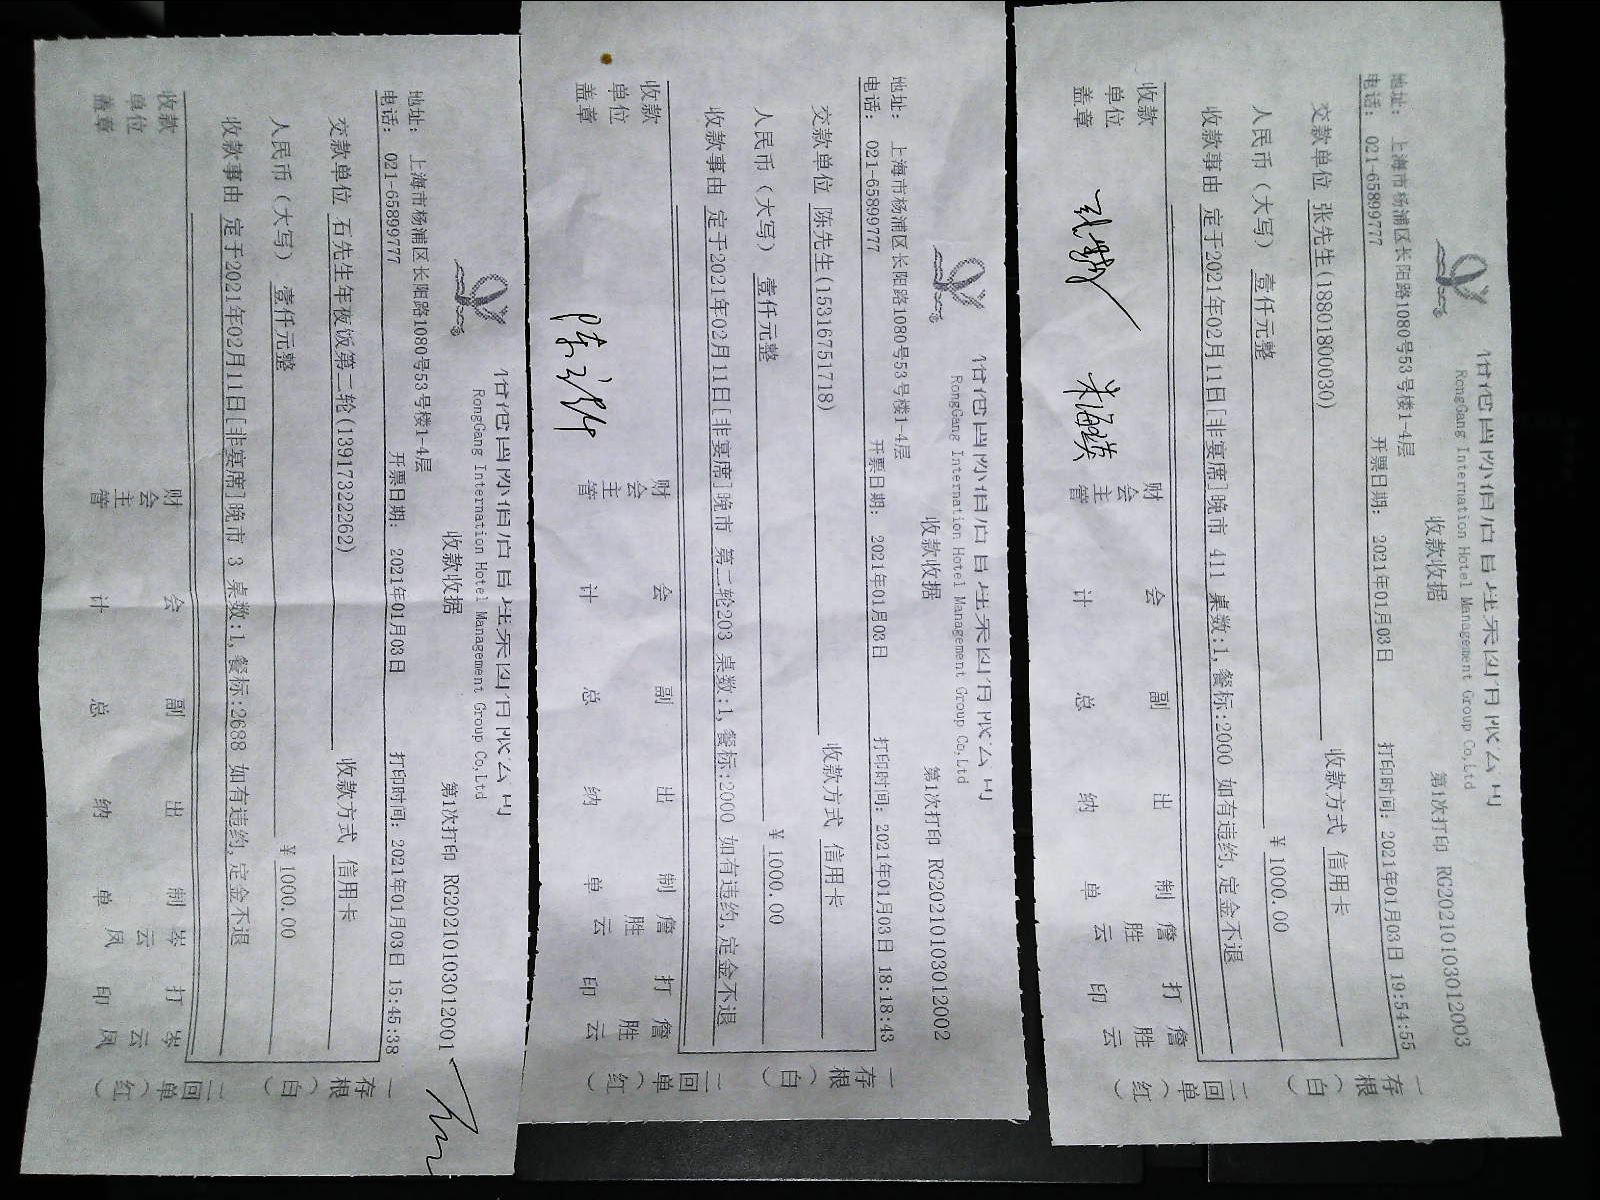 RongGang Internation Hotel Management Group Co,Ltd
收款收据
第1次打印 RG20210103012001
地址: 上海市杨浦区长阳路1080号53号楼1-4层
电话: 021-65899777
开票日期: 2021年01月03日
打印时间: 2021年01月03日 15:45:38
交款单位 石先生年夜饭第二轮(13917322262)
收款方式 信用卡
人民币（大写） 壹仟元整
¥ 1000.00
收款事由 定于2021年02月11日[非宴席]晚市 3 桌数:1,餐标:2688 如有违约,定金不退
收款单位盖章
财会主管
会计
副总
出纳
制单
岑云凤
打印
岑云凤
一存根（白）
二回单（红）
RongGang Internation Hotel Management Group Co,Ltd
收款收据
第1次打印 RG20210103012002
地址: 上海市杨浦区长阳路1080号53号楼1-4层
电话: 021-65899777
开票日期: 2021年01月03日
打印时间: 2021年01月03日 18:18:43
交款单位 陈先生(15316751718)
收款方式 信用卡
人民币（大写） 壹仟元整
¥ 1000.00
收款事由 定于2021年02月11日[非宴席]晚市 第二轮203 桌数:1,餐标:2000 如有违约,定金不退
收款单位盖章
财会主管
会计
副总
出纳
制单
詹胜云
打印
詹胜云
一存根（白）
二回单（红）
RongGang Internation Hotel Management Group Co,Ltd
收款收据
第1次打印 RG20210103012003
地址: 上海市杨浦区长阳路1080号53号楼1-4层
电话: 021-65899777
开票日期: 2021年01月03日
打印时间: 2021年01月03日 19:54:55
交款单位 张先生(18801800030)
收款方式 信用卡
人民币（大写） 壹仟元整
¥ 1000.00
收款事由 定于2021年02月11日[非宴席]晚市 411 桌数:1,餐标:2000 如有违约,定金不退
收款单位盖章
财会主管
会计
副总
出纳
制单
詹胜云
打印
詹胜云
一存根（白）
二回单（红）